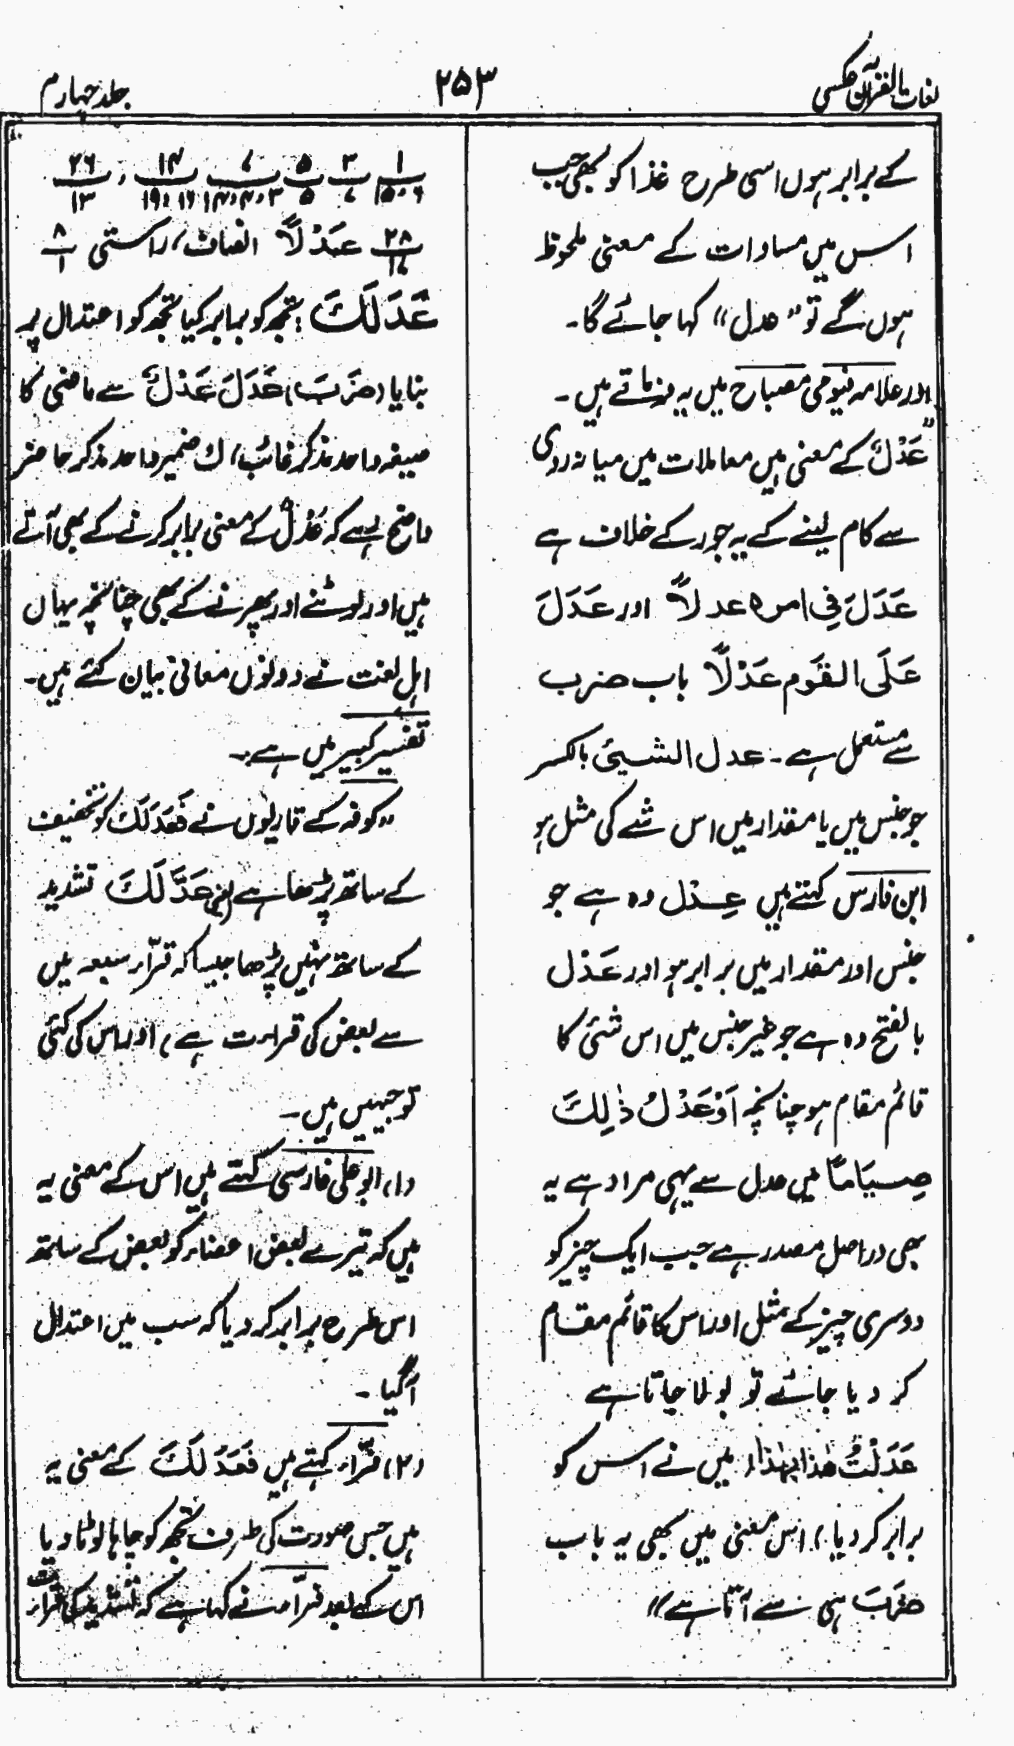 لغات القرآن عکسی
۲۵۳
جلد چہارم
کے برابر ہوں اسی طرح غذا کو بھی جب
اس میں مساوات کے معنی ملحوظ
ہوں گے تو "عدل" کہا جائے گا۔
اور علامہ فیومی مصباح میں یہ فرماتے ہیں۔
"عَدْلٌ کے معنی ہیں معاملات میں میانہ روی
سے کام لینے کے یہ جور کے خلاف ہے
عَدَلَ فِی امرہ عدلاً اور عَدَلَ
عَلَی القَوم عَدْلاً باب ضرب
سے مستعمل ہے۔ عدل الشیئ بالکسر
جو جنس میں یا مقدار میں اس شے کی مثل ہو
ابن فارس کہتے ہیں عِدْل وہ ہے جو
جنس اور مقدار میں برابر ہو اور عَدْل
بالفتح وہ ہے جو غیر جنس میں اس شئی کا
قائم مقام ہو چنانچہ اَوْعَدْلُ ذٰلِکَ
صِیَامًا میں عدل سے یہی مراد ہے یہ
بھی دراصل مصدر ہے جب ایک چیز کو
دوسری چیز کے مثل اور اس کا قائم مقام
کر دیا جائے تو بولا جاتا ہے
عَدَلْتُ ھٰذا بِھٰذا، میں نے اس کو
برابر کر دیا) اس معنی میں بھی یہ باب
ضَرَبَ ہی سے آتا ہے"
۱ ۳ ۵ ۷ ۱۴ ، ۲۶
۶ ، ۱۵ ۷ ۵ ۳ ، ۴ ، ۱۴ ۱۶ ، ۱۹ ۱۳
۲۸ عَدْلاً انصاف، راستی ۸
۱۷ ۱
عَدَلَکَ ؛ تجھ کو برابر کیا تجھ کو اعتدال پر
بنایا (ضَرَبَ) عَدَلَ عَدْلٌ سے ماضی کا
صیغہ واحد مذکر غائب، ک ضمیر واحد مذکر حاضر
واضح رہے کہ عَدْلٌ کے معنی برابر کرنے کے بھی آتے
ہیں اور لوٹنے اور پھرنے کے بھی چنانچہ یہاں
اہل لغت نے دونوں معانی بیان کئے ہیں۔
تفسیر کبیر میں ہے :۔
"کوفہ کے قاریوں نے فَعَدَلَکَ کو تخفیف
کے ساتھ پڑھا ہے (یعنی عَدَّلَکَ تشدید
کے ساتھ نہیں پڑھا جیسا کہ قرّاء سبعہ میں
سے بعض کی قراءت ہے) اور اس کی کئی
توجیہیں ہیں۔
(۱) ابو علی فارسی کہتے ہیں اس کے معنی یہ
ہیں کہ تیرے بعض اعضاء کو بعض کے ساتھ
اس طرح برابر کر دیا کہ سب میں اعتدال
آگیا۔
(۲) فرّاء کہتے ہیں فَعَدَلَکَ کے معنی یہ
ہیں جس صورت کی طرف تجھ کو چاہا لوٹا دیا
اس کے بعد فرّاء نے کہا ہے کہ تشدید کی قراءت